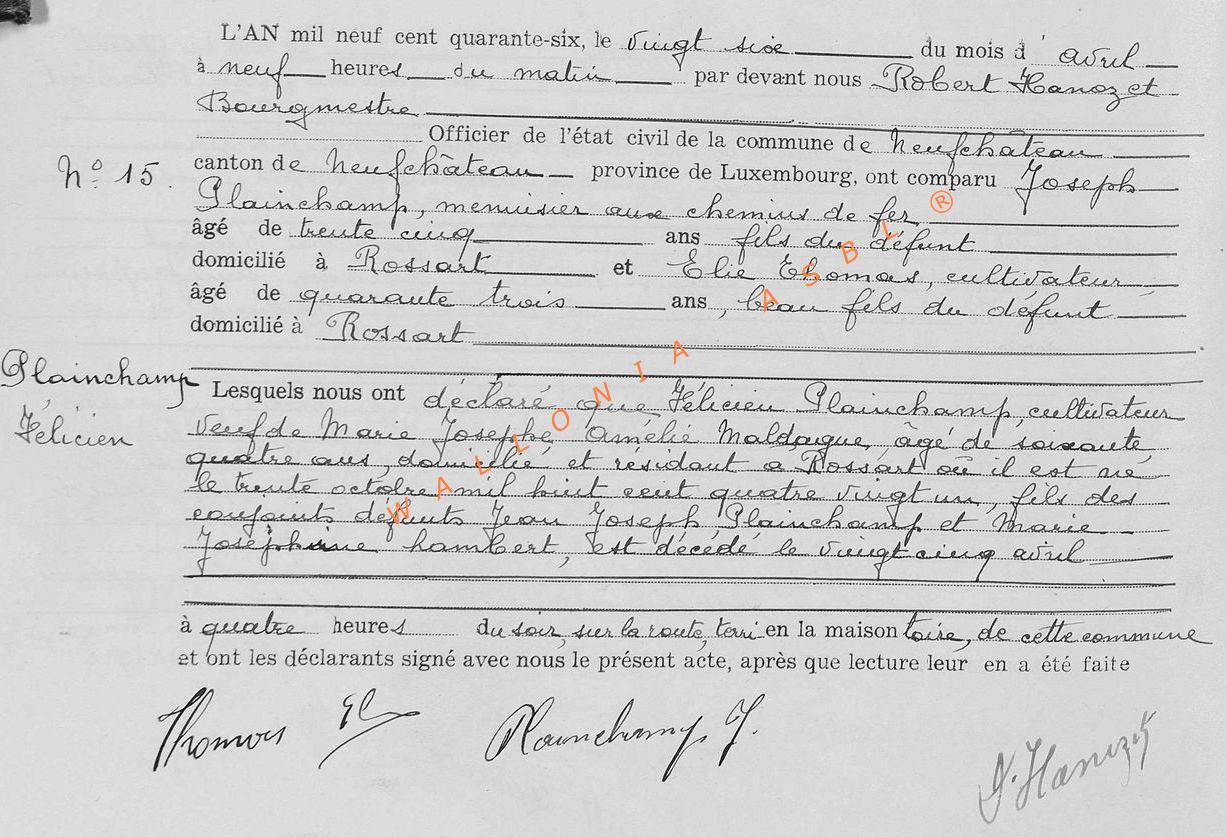 L'AN mil neuf cent quarante-six, le vingt six du mois d'avril
à neuf heures du matin par devant nous Robert Hanozet
Bourgmestre
Officier de l'état civil de la commune de Neufchâteau
N° 15.
canton de Neufchâteau province de Luxembourg, ont comparu Joseph
Plainchamp, menuisier aux chemins de fer
âgé de trente cinq ans fils du défunt
domicilié à Rossart et Elie Thomas, cultivateur
âgé de quarante trois ans, beau fils du défunt
domicilié à Rossart
WALLONIA ASBL ®
Plainchamp
Félicien
Lesquels nous ont déclaré que Félicien Plainchamp, cultivateur
veuf de Marie Josephe Amélie Maldague, âgé de soixante
quatre ans, domicilié et résidant à Rossart où il est né
le trente octobre mil huit cent quatre vingt un, fils des
conjoints défunts Jean Joseph Plainchamp et Marie
Joséphine Lambert, est décédé le vingt cinq avril
à quatre heures du soir, sur la route, terri en la maison toire, de cette commune
et ont les déclarants signé avec nous le présent acte, après que lecture leur en a été faite
Thomas El
Plainchamp J.